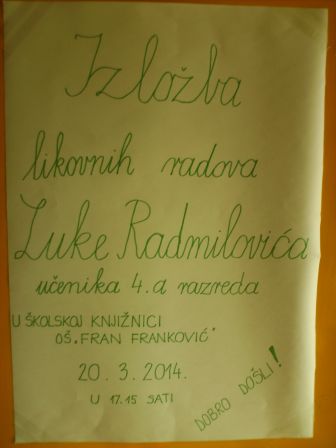 Izložba
likovnih radova
Luke Radmilovića
učenika 4.a razreda
U ŠKOLSKOJ KNJIŽNICI
OŠ „FRAN FRANKOVIĆ"
20. 3. 2014.
U 17.15 SATI
DOBRO DOŠLI!